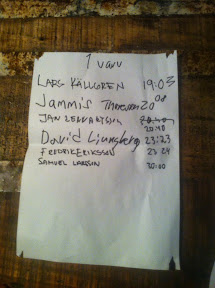 1 varv
LARS KÄLLGREN 19:03
Jammis 20:00
JAN
20:40
David Ljungberg 23:23
FREDRIK ERIKSSON 23 24
SAMUEL LARSSON 20:00